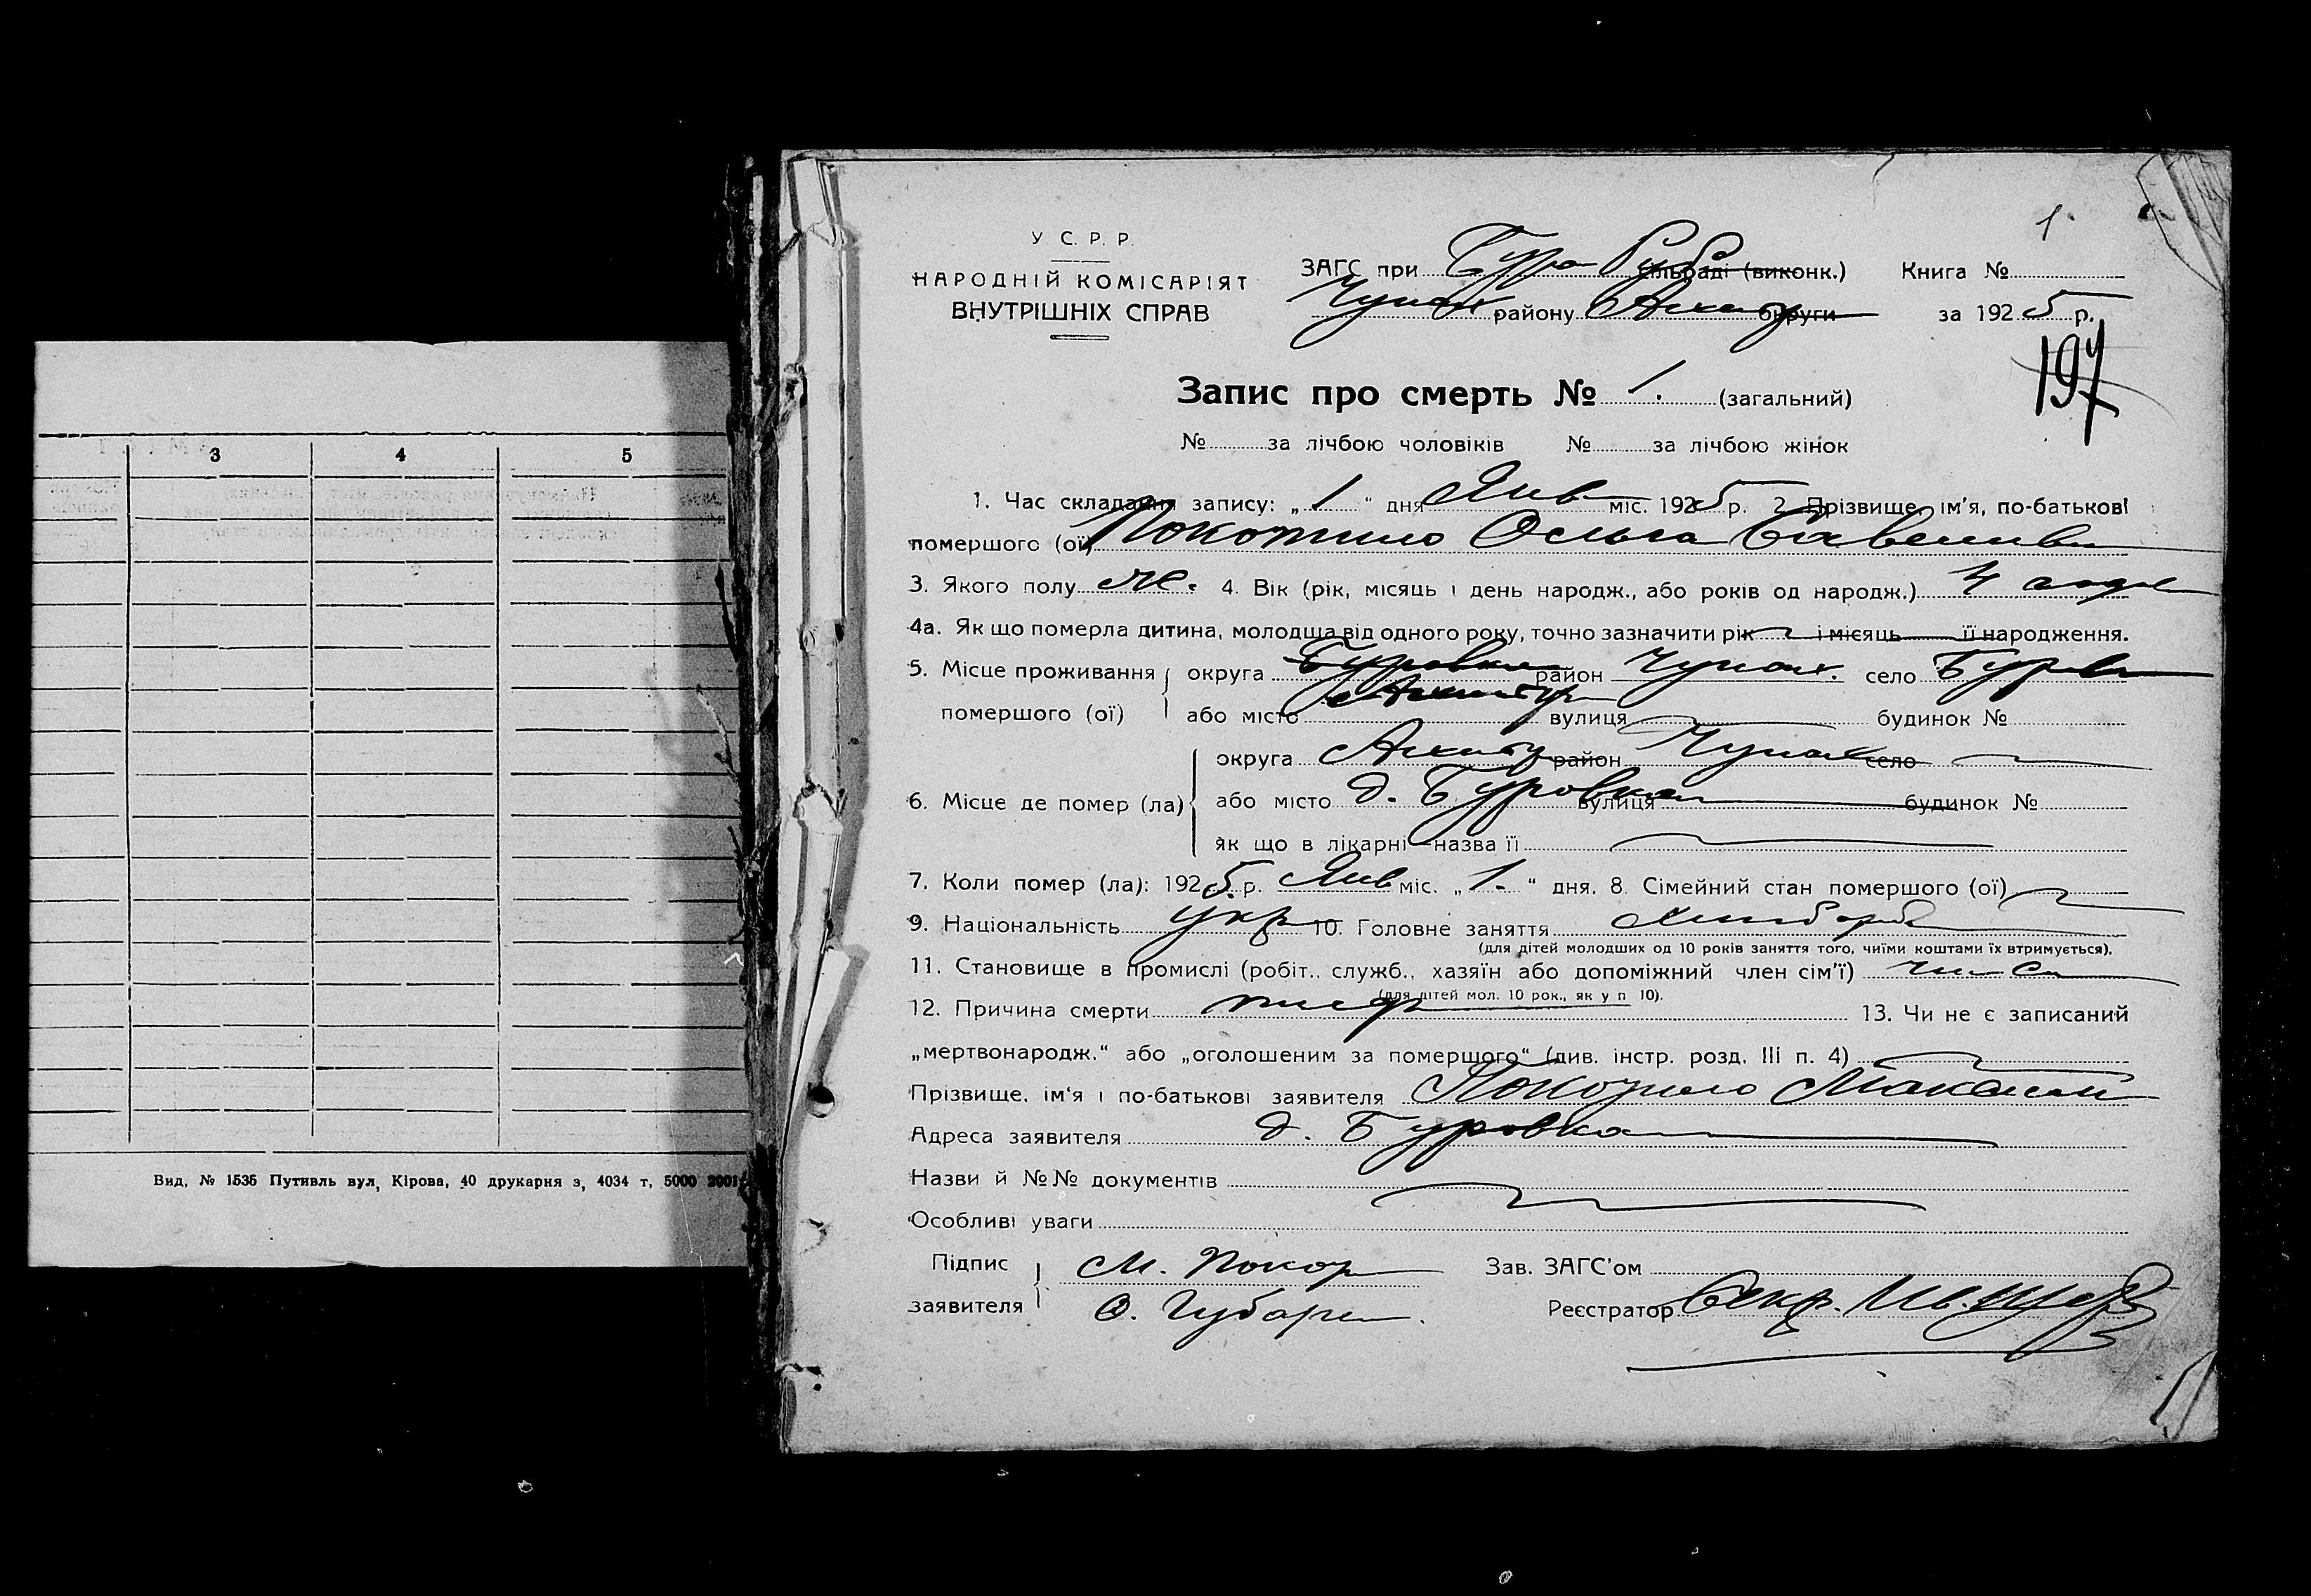 3 4 5
Вид, № 1535 Путивль вул, Кірова, 40 друкарня з, 4034 т, 5000 2001
1.
У С. Р. Р.
НАРОДНІЙ КОМІСАРІЯТ
ВНУТРІШНІХ СПРАВ
ЗАГС при сільраді (виконк.) Книга №
Чупах району Ахтыр округи за 1925 р.
197
Запис про смерть № 1. (загальний)
№ за лічбою чоловіків № за лічбою жінок
1. Час складання запису: „ 1 “ дня Янв міс. 1925 р. 2. Прізвище, ім'я, по-батькові
помершого (ої) Покотило Ольга
3. Якого полу ж. 4. Вік (рік, місяць і день народж., або років од народж.) 4 года
4а. Як що померла дитина, молодша від одного року, точно зазначити рік і місяць її народження.
5. Місце проживання округа Буровка район Чупах. село Буров
Ахтыр
помершого (ої) або місто вулиця будинок №
округа Ахты район Чупах село
6. Місце де помер (ла) або місто д. Буровка вулиця будинок №
як що в лікарні—назва її
7. Коли помер (ла): 1925 р. Янв міс. „ 1. “ дня. 8. Сімейний стан помершого (ої)
9. Національність укр 10. Головне заняття хлибороб
(для дітей молодших од 10 років заняття того, чиїми коштами їх втримується).
11. Становище в промислі (робіт., служб., хазяїн або допоміжний член сім'ї) чл. с.
(для дітей мол. 10 рок., як у п 10).
12. Причина смерти тиф 13. Чи не є записаний
„мертвонародж.“ або „оголошеним за померщого“ (див. інстр. розд. III п. 4)
Прізвище, ім'я і по-батькові заявителя Покотило Максим
Адреса заявителя д. Буровка
Назви й №№ документів
Особливі уваги
Підпис М. Покот Зав. ЗАГС'ом
заявителя О. Губарь Реєстратор Секр.